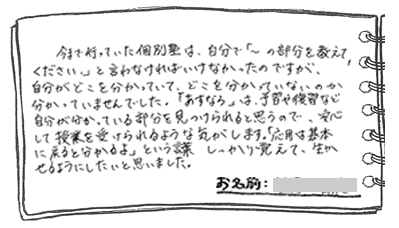 今まで行っていた個別塾は、自分で「～の部分を教えて
ください。」と言わなければいけなかったのですが、
自分がどこを分かっていて、どこを分かっていないのか
分かっていませんでした。「あすなろ」は、予習や復習など
自分が分かっている部分を見つけられると思うので、安心
して授業を受けられるような気がします。「応用は基本
に戻ると分かるよ」という言葉 しっかり覚えて、生か
せるようにしたいと思いました。
お名前: